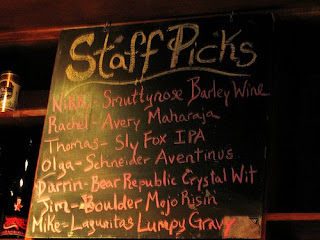 Staff Picks
Nikk - Smuttynose Barley Wine
Rachel - Avery Maharaja
Thomas - Sly Fox IPA
Olga - Schneider Aventinus
Darrin - Bear Republic Crystal Wit
Jim - Boulder Mojo Risin
Mike - Lagunitas Lumpy Gravy